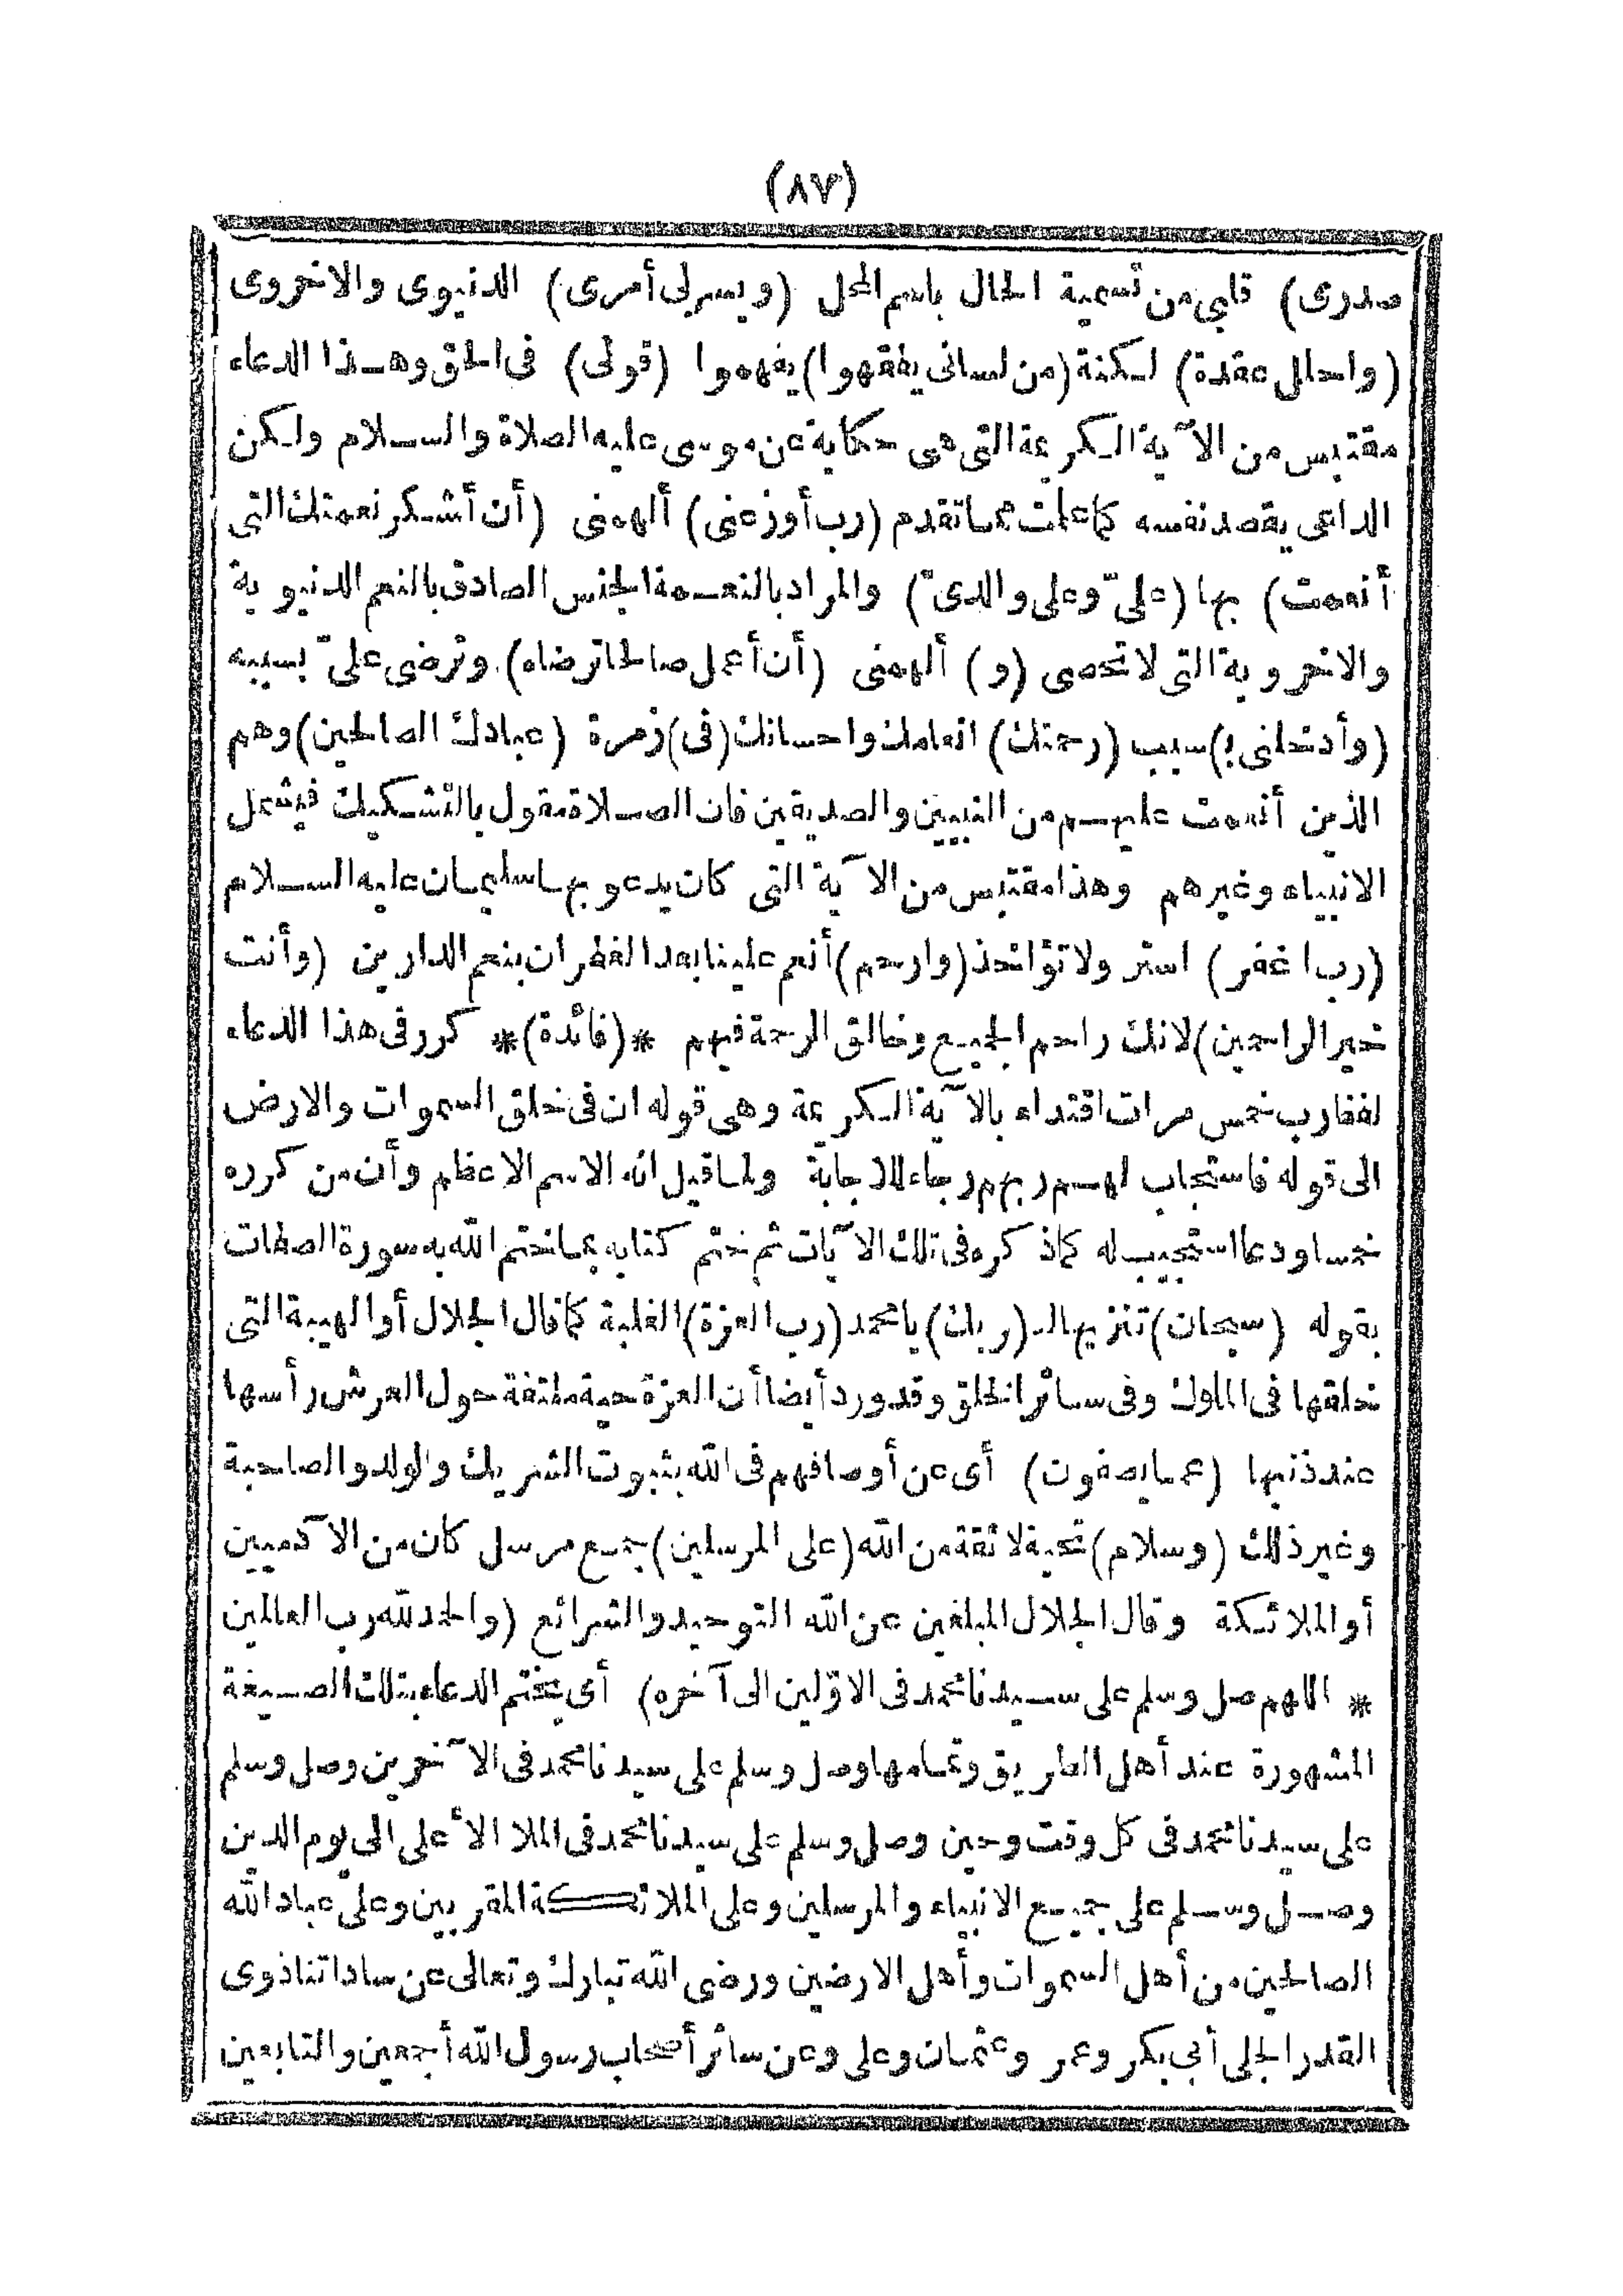 (٨٧)
صدرى) قلبى من تسمية الحال باسم المحل (ويسر لى أمرى) الدنيوى والاخروى
(واحلل عقدة) لكنة (من لسانى يفقهوا) يفهموا (قولى) فى الحق وهذا الدعاء
مقتبس من الآية الكريمة التى هى حكاية عن موسى عليه الصلاة والسلام ولكن
الداعى يقصد نفسه كما علمت مما تقدم (رب أوزعنى) ألهمنى (أن أشكر نعمتك التى
أنعمت) بها (علىّ وعلى والدىّ) والمراد بالنعمة الجنس الصادق بالنعم الدنيوية
والاخروية التى لا تحصى (و) ألهمنى (أن أعمل صالحا ترضاه) وترضى علىّ بسببه
(وأدخلنى ب) سبب (رحمتك) انعامك واحسانك (فى) زمرة (عبادك الصالحين) وهم
الذين أنعمت عليهم من النبيين والصديقين فان الصلاة مقول بالتشكيك فيشمل
الانبياء وغيرهم وهذا مقتبس من الآية التى كان يدعو بها سليمان عليه السلام
(رب اغفر) استر ولا تؤاخذ (وارحم) أنعم علينا بعد الغفران بنعم الدارين (وأنت
خير الراحمين) لانك راحم الجميع وخالق الرحمة فيهم * (فائدة) * كرر فى هذا الدعاء
لفظ رب خمس مرات اقتداء بالآية الكريمة وهى قوله ان فى خلق السموات والارض
الى قوله فاستجاب لهم ربهم رجاء للاجابة ولما قيل انه الاسم الاعظم وأن من كرره
خمسا ودعا استجيب له كما ذكره فى تلك الآيات ثم ختم كتابه بما ختم الله به سورة الصفات
بقوله (سبحان) تنزيها لـ (ربك) يا محمد (رب العزة) الغلبة كما قال الجلال أو الهيبة التى
خلقها فى الملوك وفى سائر الخلق وقد ورد أيضا أن العزة حية ملتفة حول العرش رأسها
عند ذنبها (عما يصفون) أى عن أوصافهم فى الله بثبوت الشريك والولد والصاحبة
وغير ذلك (وسلام) تحية لائقة من الله (على المرسلين) جميع مرسل كان من الآدميين
أو الملائكة وقال الجلال المبلغين عن الله التوحيد والشرائع (والحمد لله رب العالمين
* اللهم صل وسلم على سيدنا محمد فى الاوّلين الى آخره) أى يختم الدعاء بتلك الصيغة
المشهورة عند أهل الطريق وتمامها وصل وسلم على سيدنا محمد فى الآخرين وصل وسلم
على سيدنا محمد فى كل وقت وحين وصل وسلم على سيدنا محمد فى الملا الأعلى الى يوم الدين
وصل وسلم على جميع الانبياء والمرسلين وعلى الملائكة المقربين وعلى عباد الله
الصالحين من أهل السموات وأهل الارضين ورضى الله تبارك وتعالى عن ساداتنا ذوى
القدر الجلى أبى بكر وعمر وعثمان وعلى وعن سائر أصحاب رسول الله أجمعين والتابعين